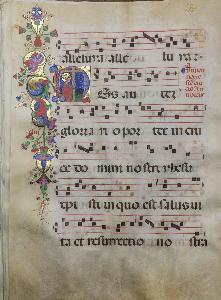 alleluia alle lu ia.
os au tez
gloria n opor tet in cru
ce do mini nostri ihesu
xpi st in quo est salus ui
ta et resurrectio no stra